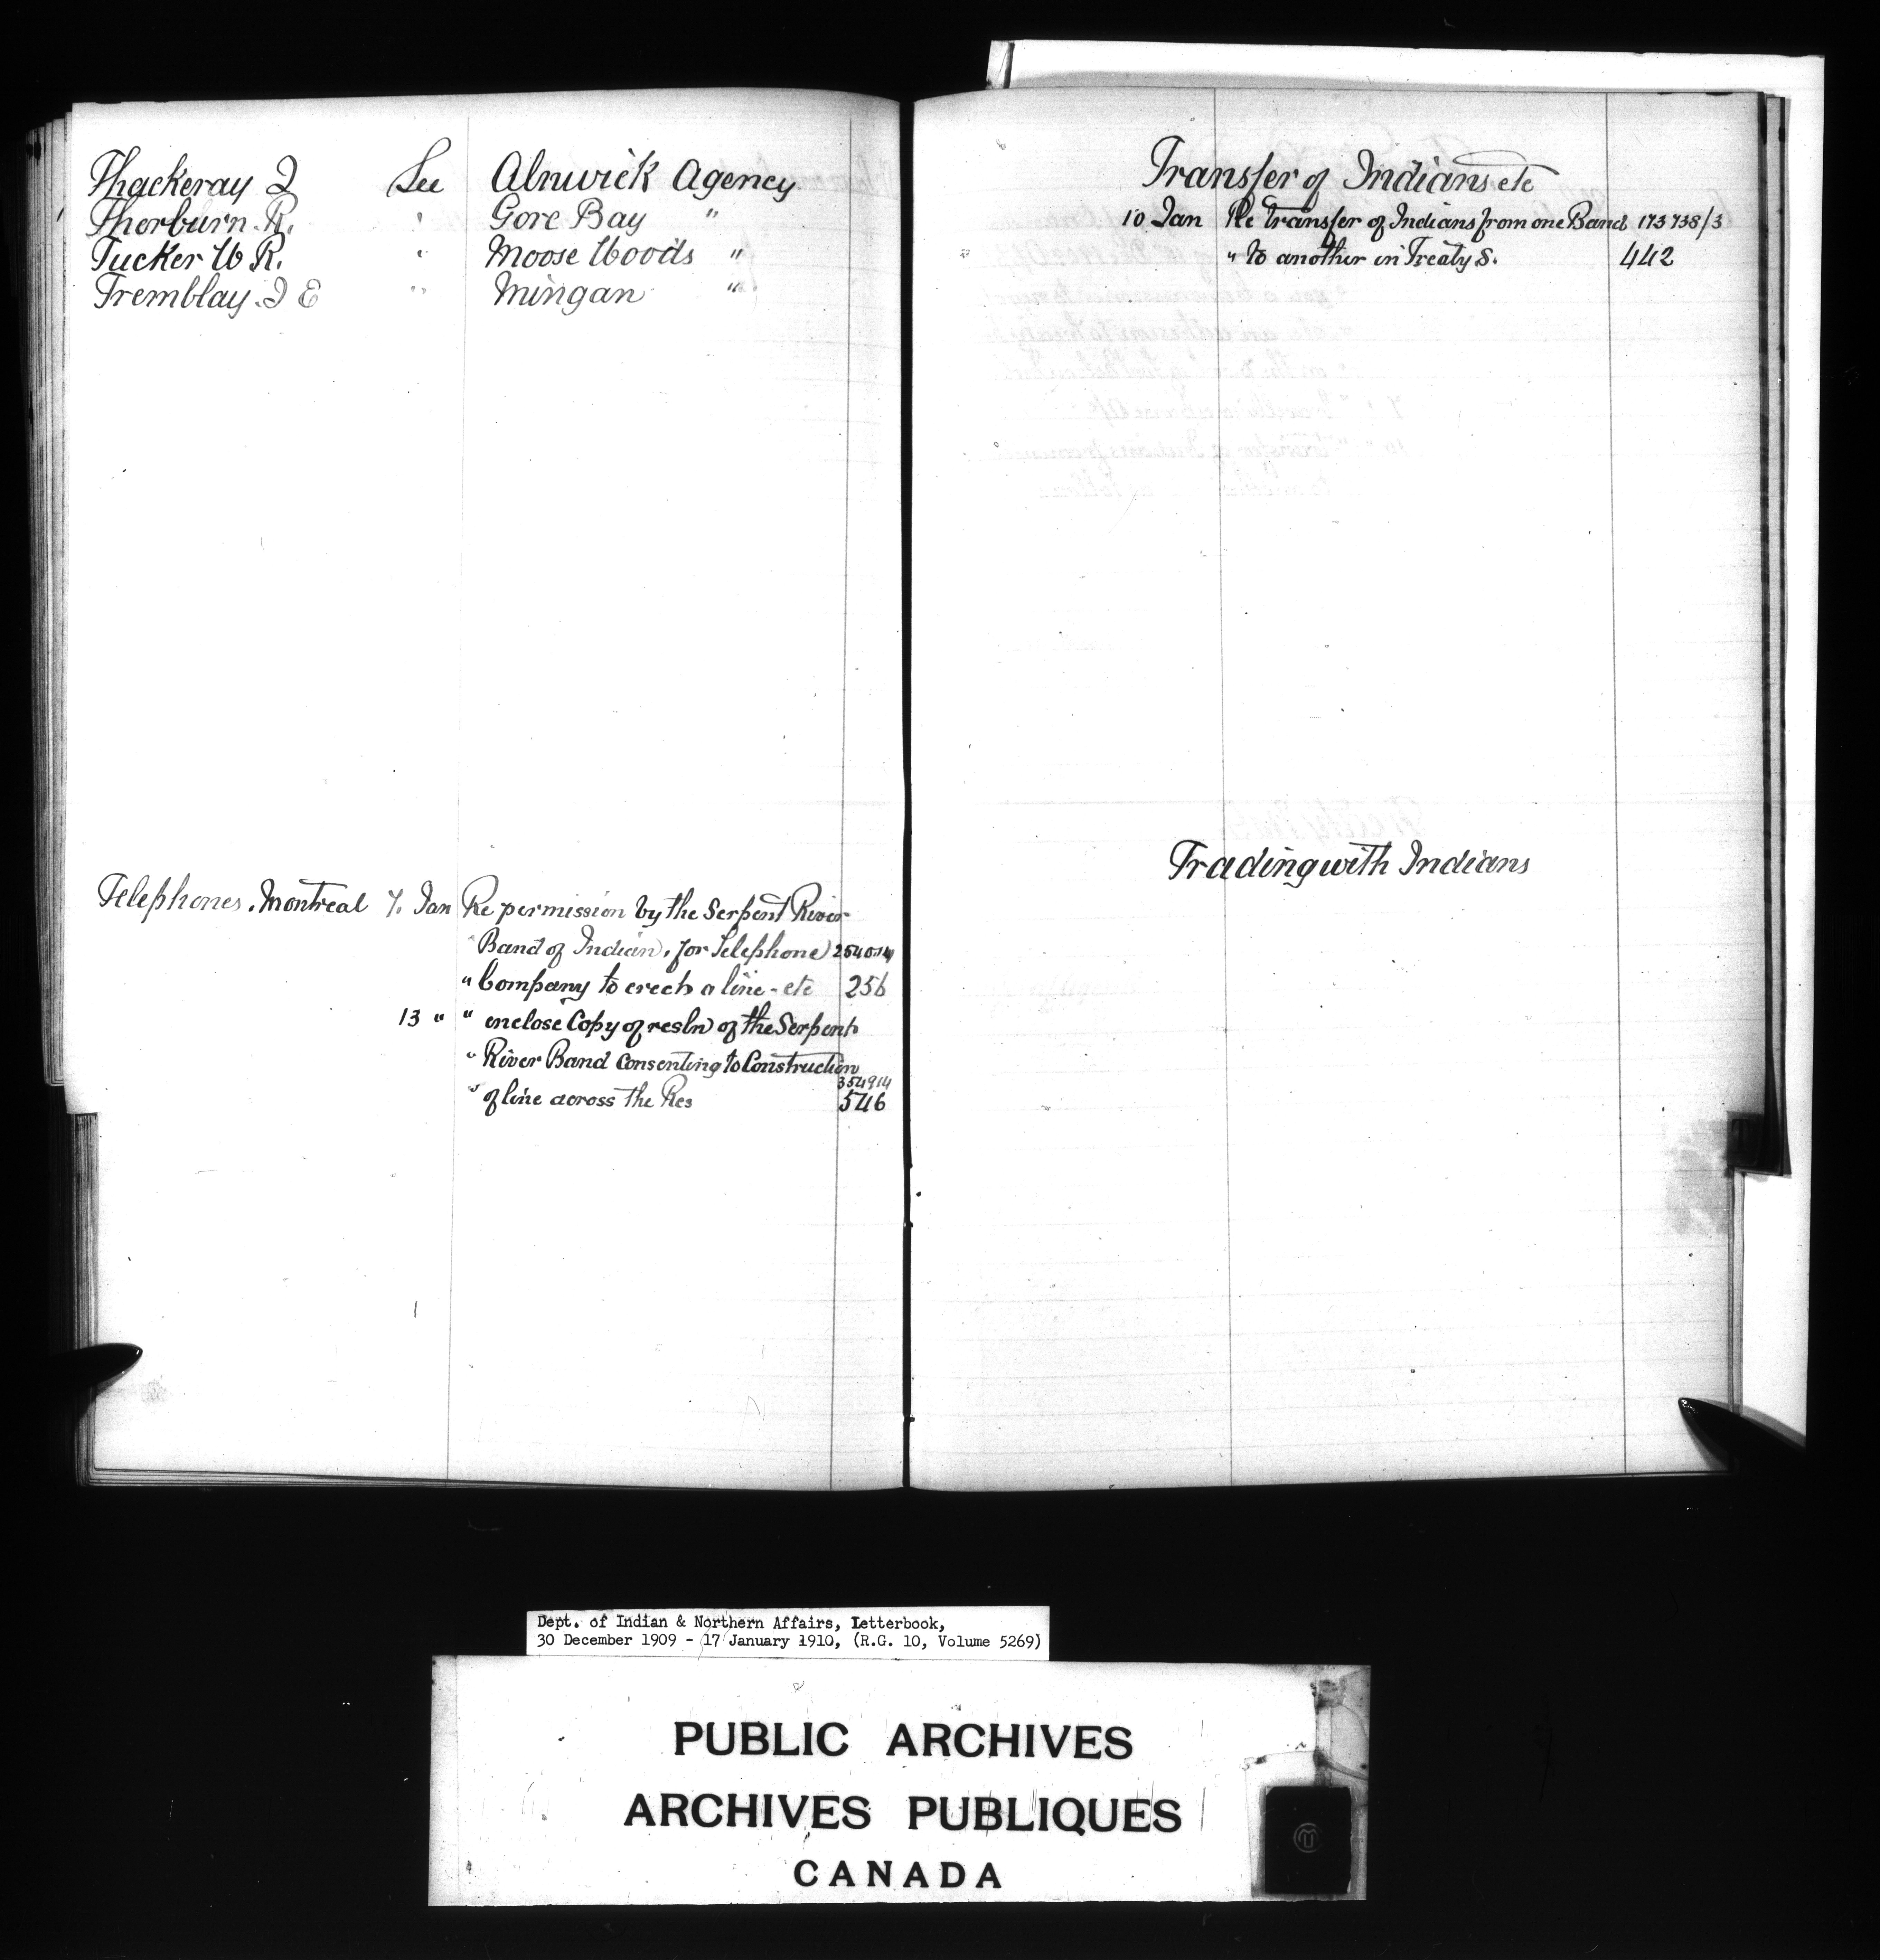 Thackeray J See Alnwick Agency
Thorburn R. " Gore Bay "
Tucker W R. " Moose Woods "
Tremblay J E " Mingan "
Telephones. Montreal 7. Jan Re permission by the Serpent River
Band of Indian, for Telephone
" Company to erect a line - etc 256
13 " " enclose Copy of resln of the Serpent
" River Band Consenting to Construction
354914
" of line across the Res 546
Transfer of Indians etc
10 Jan Re transfer of Indians from one Band 173738/3
" to another in Treaty 8. 442
Trading with Indians
Dept. of Indian & Northern Affairs, Letterbook,
30 December 1909 - 17 January 1910, (R.G. 10, Volume 5269)
PUBLIC ARCHIVES
ARCHIVES PUBLIQUES
CANADA